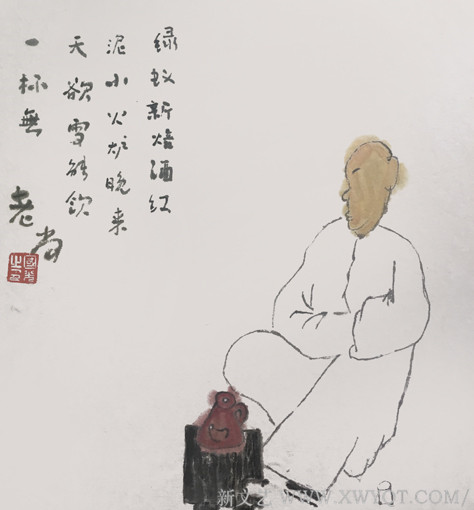 绿蚁新焙酒红
泥小火炉晚来
天欲雪能饮
一杯無
老
新文艺 WWW.XWYQT.COM/